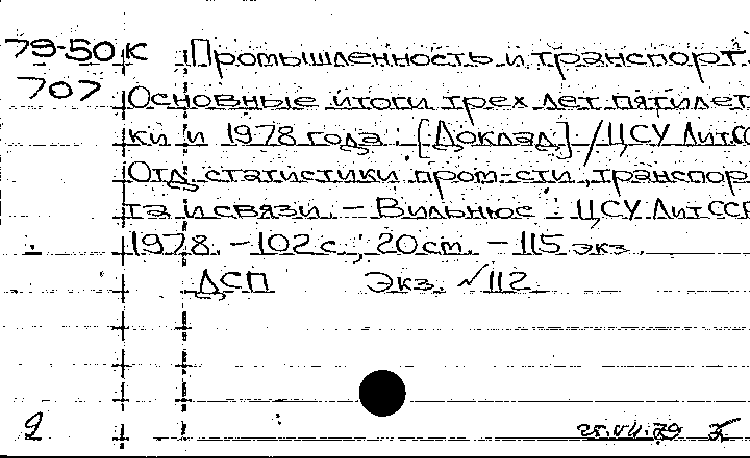 79-50 к Промышленность и транспорт.
707 Основные итоги трех лет пятилет
ки и 1978 года : [Доклад] / ЦСУ ЛитСС
Отд. статистики пром-сти, транспор
та и связи. – Вильнюс : ЦСУ ЛитССР
1978. – 102 с. ; 20 см. – 115 экз.
ДСП Экз. №112
2